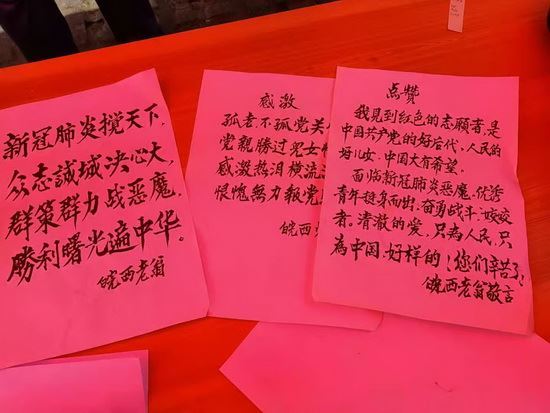 新冠肺炎搅天下,
众志誠城决心大,
群策群力战恶魔,
勝利曙光遍中华。
皖西老翁
感激
孤老不孤党关
党親勝过兒女
感激热泪横流
恨愧無力報党
皖西
点赞
我見到红色的志願者,是
中国共产党的好后代,人民的
好儿女,中国大有希望。
面临新冠肺炎恶魔,优秀
青年挺身而出,奋勇战斗,姣姣
者。清澈的爱,只為人民,只
為中国,好样的!你们辛苦了!
皖西老翁敬言